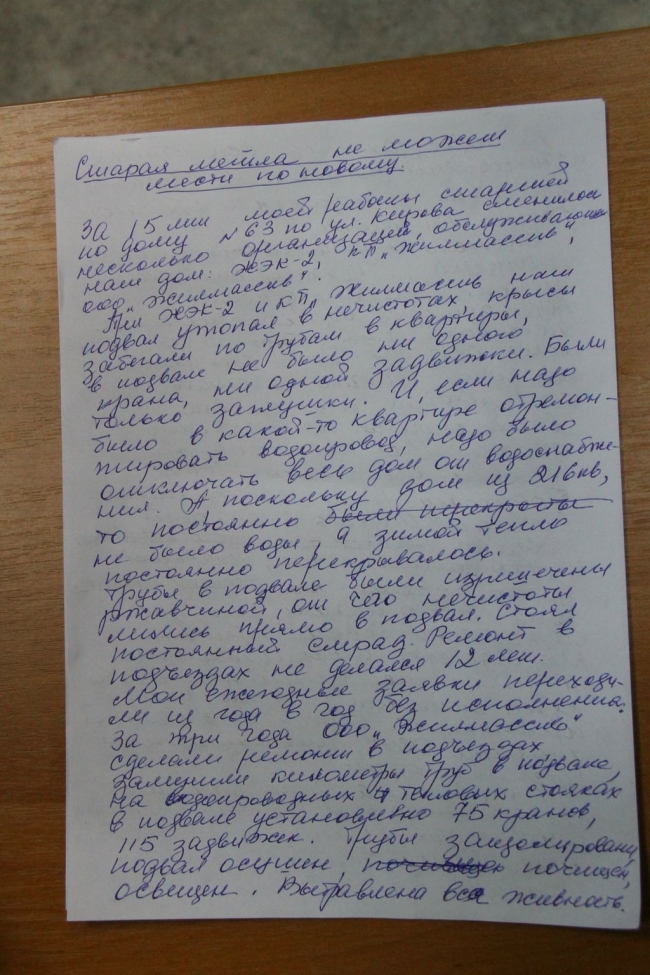 Старая метла не может
мести по новому.
За 15 лет моей работы старшей
по дому №63 по ул. Кирова сменилось
несколько организаций, обслуживающих
наш дом: ЖЭК-2, КП „Жилмассив",
ООО „Жилмассив".
При ЖЭК-2 и КП „Жилмассив наш
подвал утопал в нечистотах, крысы
забегали по трубам в квартиры,
в подвале не было ни одного
крана, ни одной задвижки. Были
только заглушки. И, если надо
было в какой-то квартире отремон-
тировать водопровод, надо было
отключать весь дом от водоснабже-
ния. А, поскольку дом из 216 кв,
то постоянно были перекрыты
не было воды, а зимой тепло
постоянно перекрывалось.
Трубы в подвале были изрешечены
ржавчиной, от чего нечистоты
лились прямо в подвал. Стоял
постоянный смрад. Ремонт в
подъездах не делался 12 лет.
Мои ежегодные заявки переходи-
ли из года в год без исполнения.
За три года ООО „Жилмассив"
сделали ремонт в подъездах,
заменили километры труб в подвале,
на водопроводных и тепловых стояках
в подвале установлено 75 кранов,
115 задвижек. Трубы заизолированы,
подвал осушен, почищен почищен,
освещен. Вытравлена вся живность.